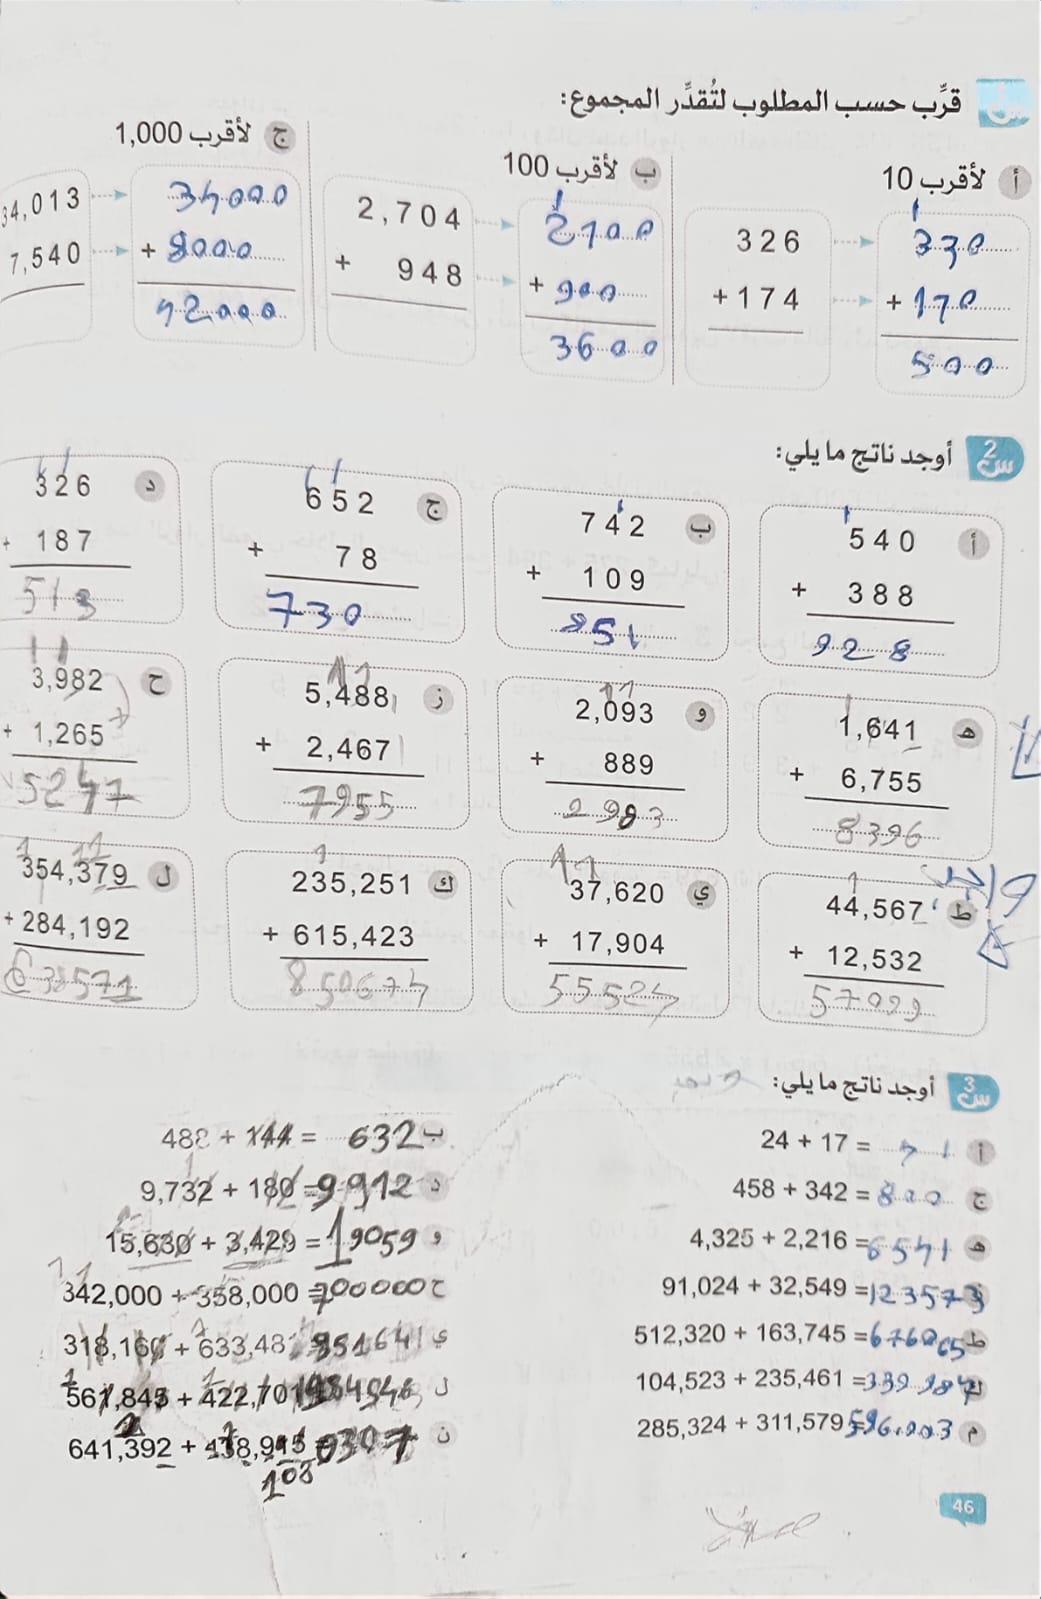 قرِّب حسب المطلوب لتُقدَّر المجموع:
أ لأقرب 10
326 330
+ 174 + 170
500
ب لأقرب 100
2,704 2700
+ 948 + 900
3600
ج لأقرب 1,000
34,013 34000
7,540 + 8000
42000
س2 أوجد ناتج ما يلي:
أ 540
+ 388
928
ب 742
+ 109
851
ج 652
+ 78
730
د 326
+ 187
513
هـ 1,641
+ 6,755
8396
و 2,093
+ 889
2983
ز 5,488
+ 2,467
7955
ح 3,982
+ 1,265
5247
ط 44,567
+ 12,532
57099
ي 37,620
+ 17,904
55524
ك 235,251
+ 615,423
850674
ل 354,379
+ 284,192
638571
س3 أوجد ناتج ما يلي:
أ 24 + 17 = 41
ب 488 + 144 = 632
ج 458 + 342 = 800
د 9,732 + 180 = 9912
هـ 4,325 + 2,216 = 6541
و 15,630 + 3,429 = 19059
ز 91,024 + 32,549 = 123573
ح 342,000 + 358,000 = 700000
ط 512,320 + 163,745 = 676065
ي 318,160 + 633,481 951641
ك 104,523 + 235,461 = 339984
ل 561,845 + 422,701 984546
م 285,324 + 311,579 596903
ن 641,392 + 438,915
46